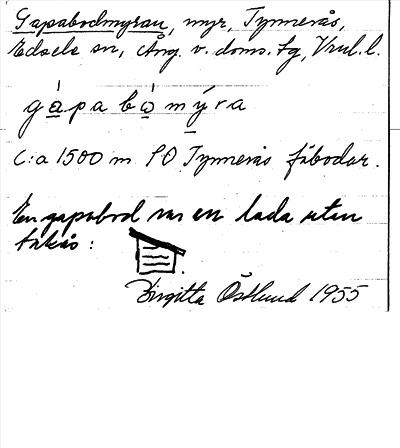 Gapabodmyran, myr, Tynnerås,
Edsele sn, Ång. v. doms. tg, Vrul. l.
gápabòmýra
C:a 1500 m SO Tynnerås fäbodar.
En gapabod var en lada utan
takås:
Birgitta Östlund 1955